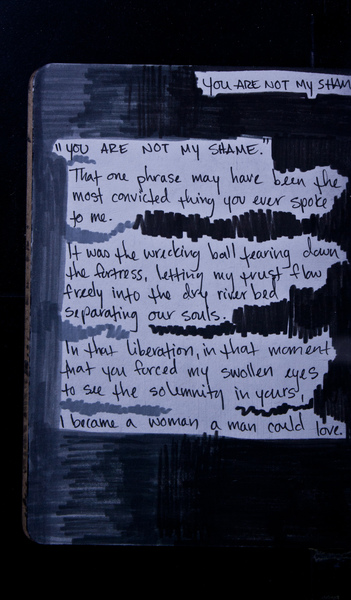 YOU ARE NOT MY SHAM
"YOU ARE NOT MY SHAME."
That one phrase may have been the
most convicted thing you ever spoke
to me.
It was the wrecking ball tearing down
the fortress, letting my trust flow
freely into the dry river bed
separating our souls.
In that liberation, in that moment
that you forced my swollen eyes
to see the solemnity in yours,
I became a woman a man could love.